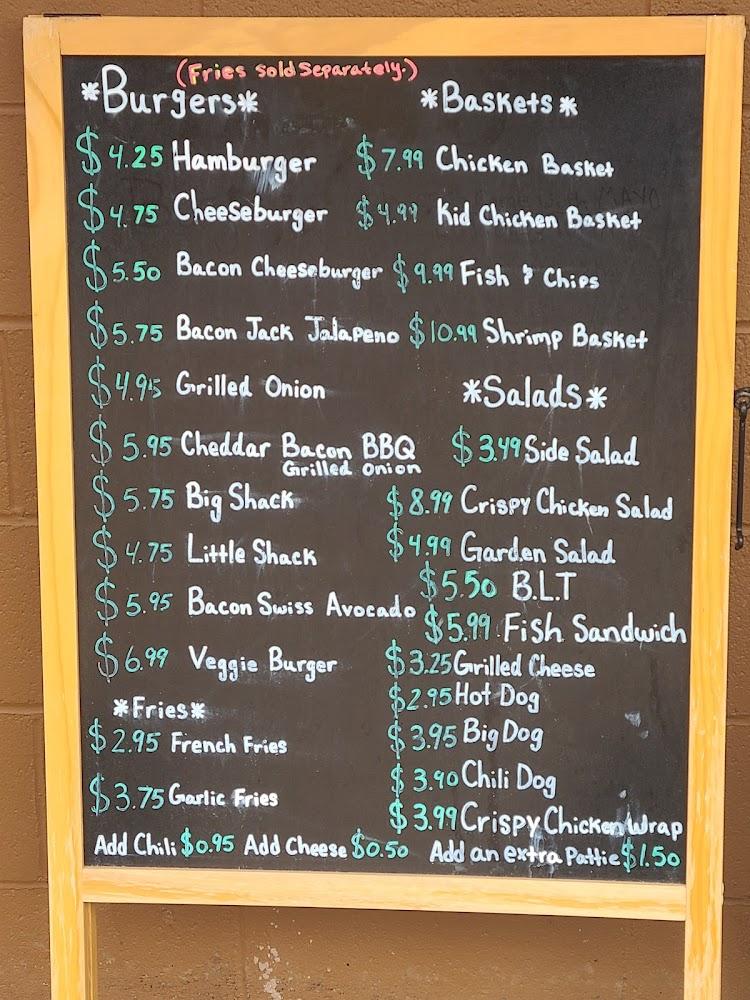 (Fries sold Separately.)
*Burgers*
$4.25 Hamburger
$4.75 Cheeseburger
$5.50 Bacon Cheeseburger
$5.75 Bacon Jack Jalapeno
$4.95 Grilled Onion
$5.95 Cheddar Bacon BBQ
Grilled onion
$5.75 Big Shack
$4.75 Little Shack
$5.95 Bacon Swiss Avocado
$6.99 Veggie Burger
*Fries*
$2.95 French Fries
$3.75 Garlic Fries
*Baskets*
$7.99 Chicken Basket
$4.99 Kid Chicken Basket
$9.99 Fish & Chips
$10.99 Shrimp Basket
*Salads*
$3.49 Side Salad
$8.99 Crispy Chicken Salad
$4.99 Garden Salad
$5.50 B.L.T
$5.99 Fish Sandwich
$3.25 Grilled Cheese
$2.95 Hot Dog
$3.95 Big Dog
$3.90 Chili Dog
$3.99 Crispy Chicken Wrap
Add Chili $0.95 Add Cheese $0.50 Add an extra Pattie $1.50